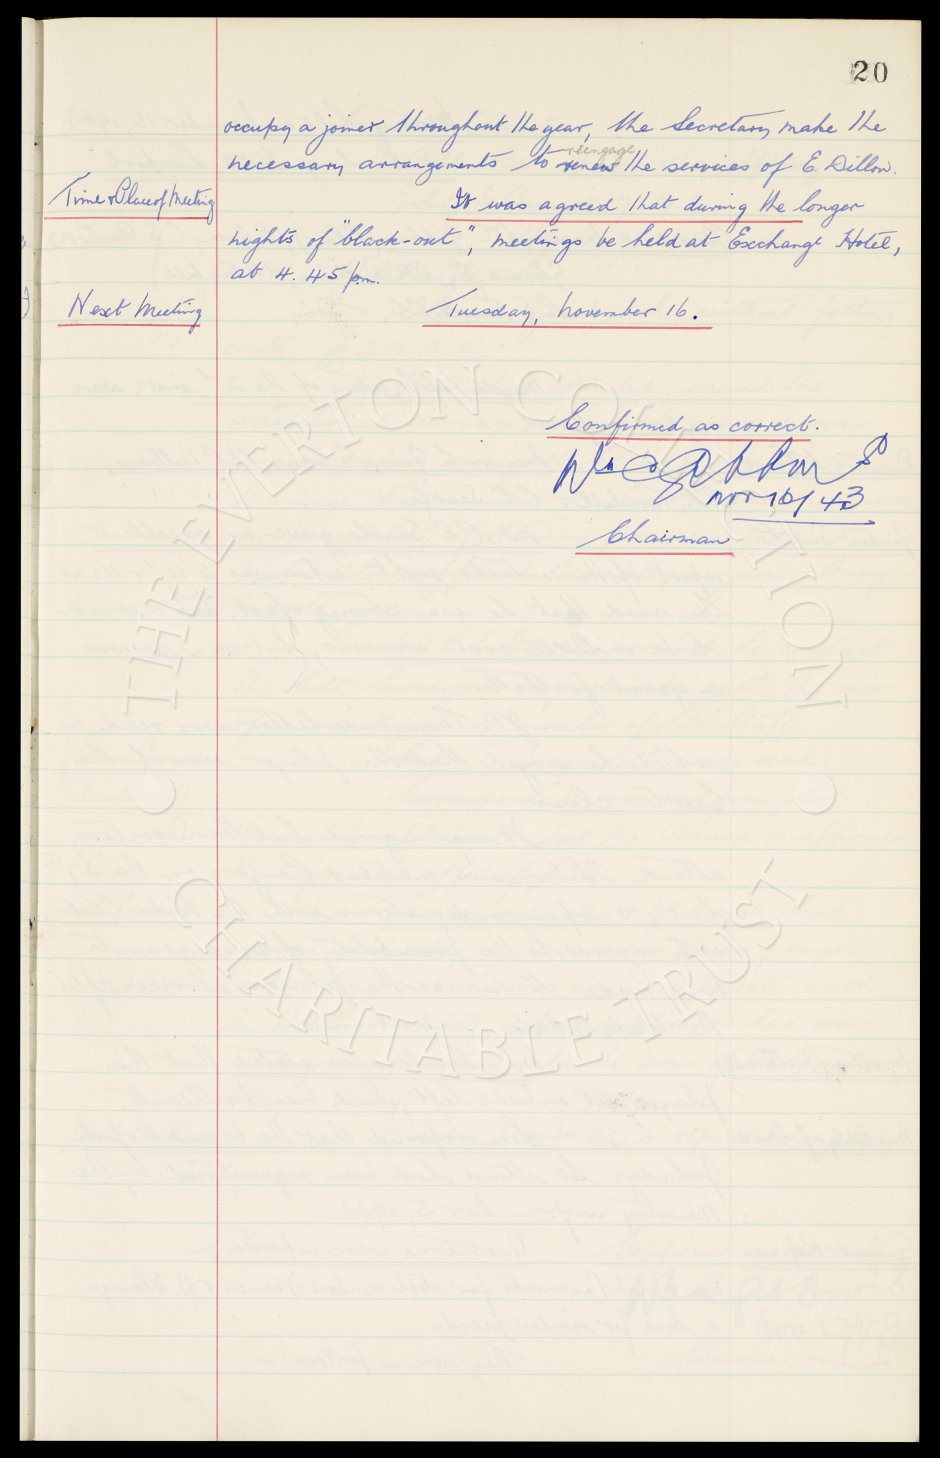 20
occupy a joiner throughout the year, the Secretary make the
reengage
necessary arrangements to renew the services of E. Dillon.
Time & Place of Meeting
It was agreed that during the longer
nights of "black-out", meetings be held at Exchange Hotel,
at 4.45 p.m.
Next Meeting
Tuesday, November 16.
Confirmed as correct.
Nov 16/43
Chairman
THE EVERTON COLLECTION
CHARITABLE TRUST